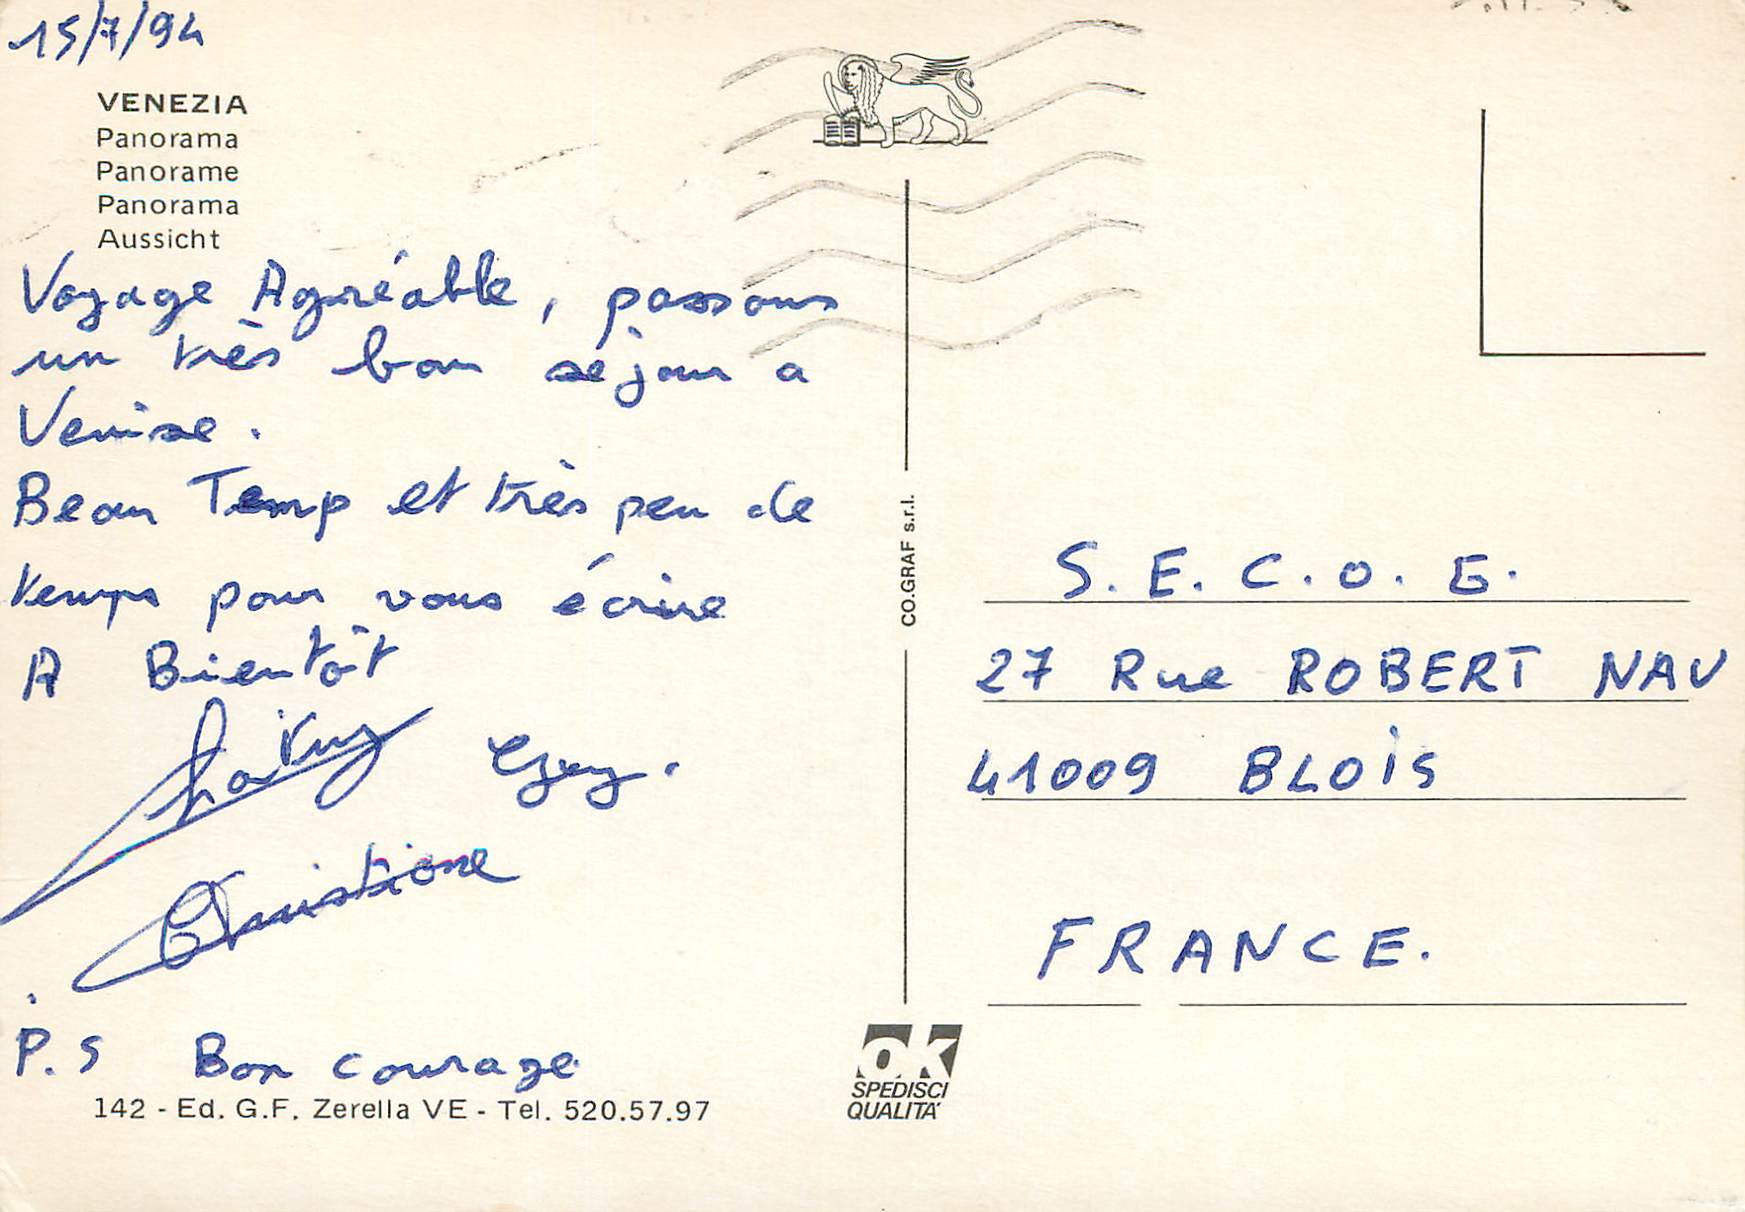 15/7/94
VENEZIA
Panorama
Panorame
Panorama
Aussicht
Voyage Agréable, passons
un très bon séjour a
Venise.
Beau Temp et très peu de
temps pour vous écrire
A Bientôt
Guy.
Christiane
P.S Bon courage
142 - Ed. G.F. Zerella VE - Tel. 520.57.97
CO.GRAF s.r.l.
OK
SPEDISCI
QUALITA'
S.E.C.O.E.
27 Rue ROBERT NAU
41009 BLOIS
FRANCE.